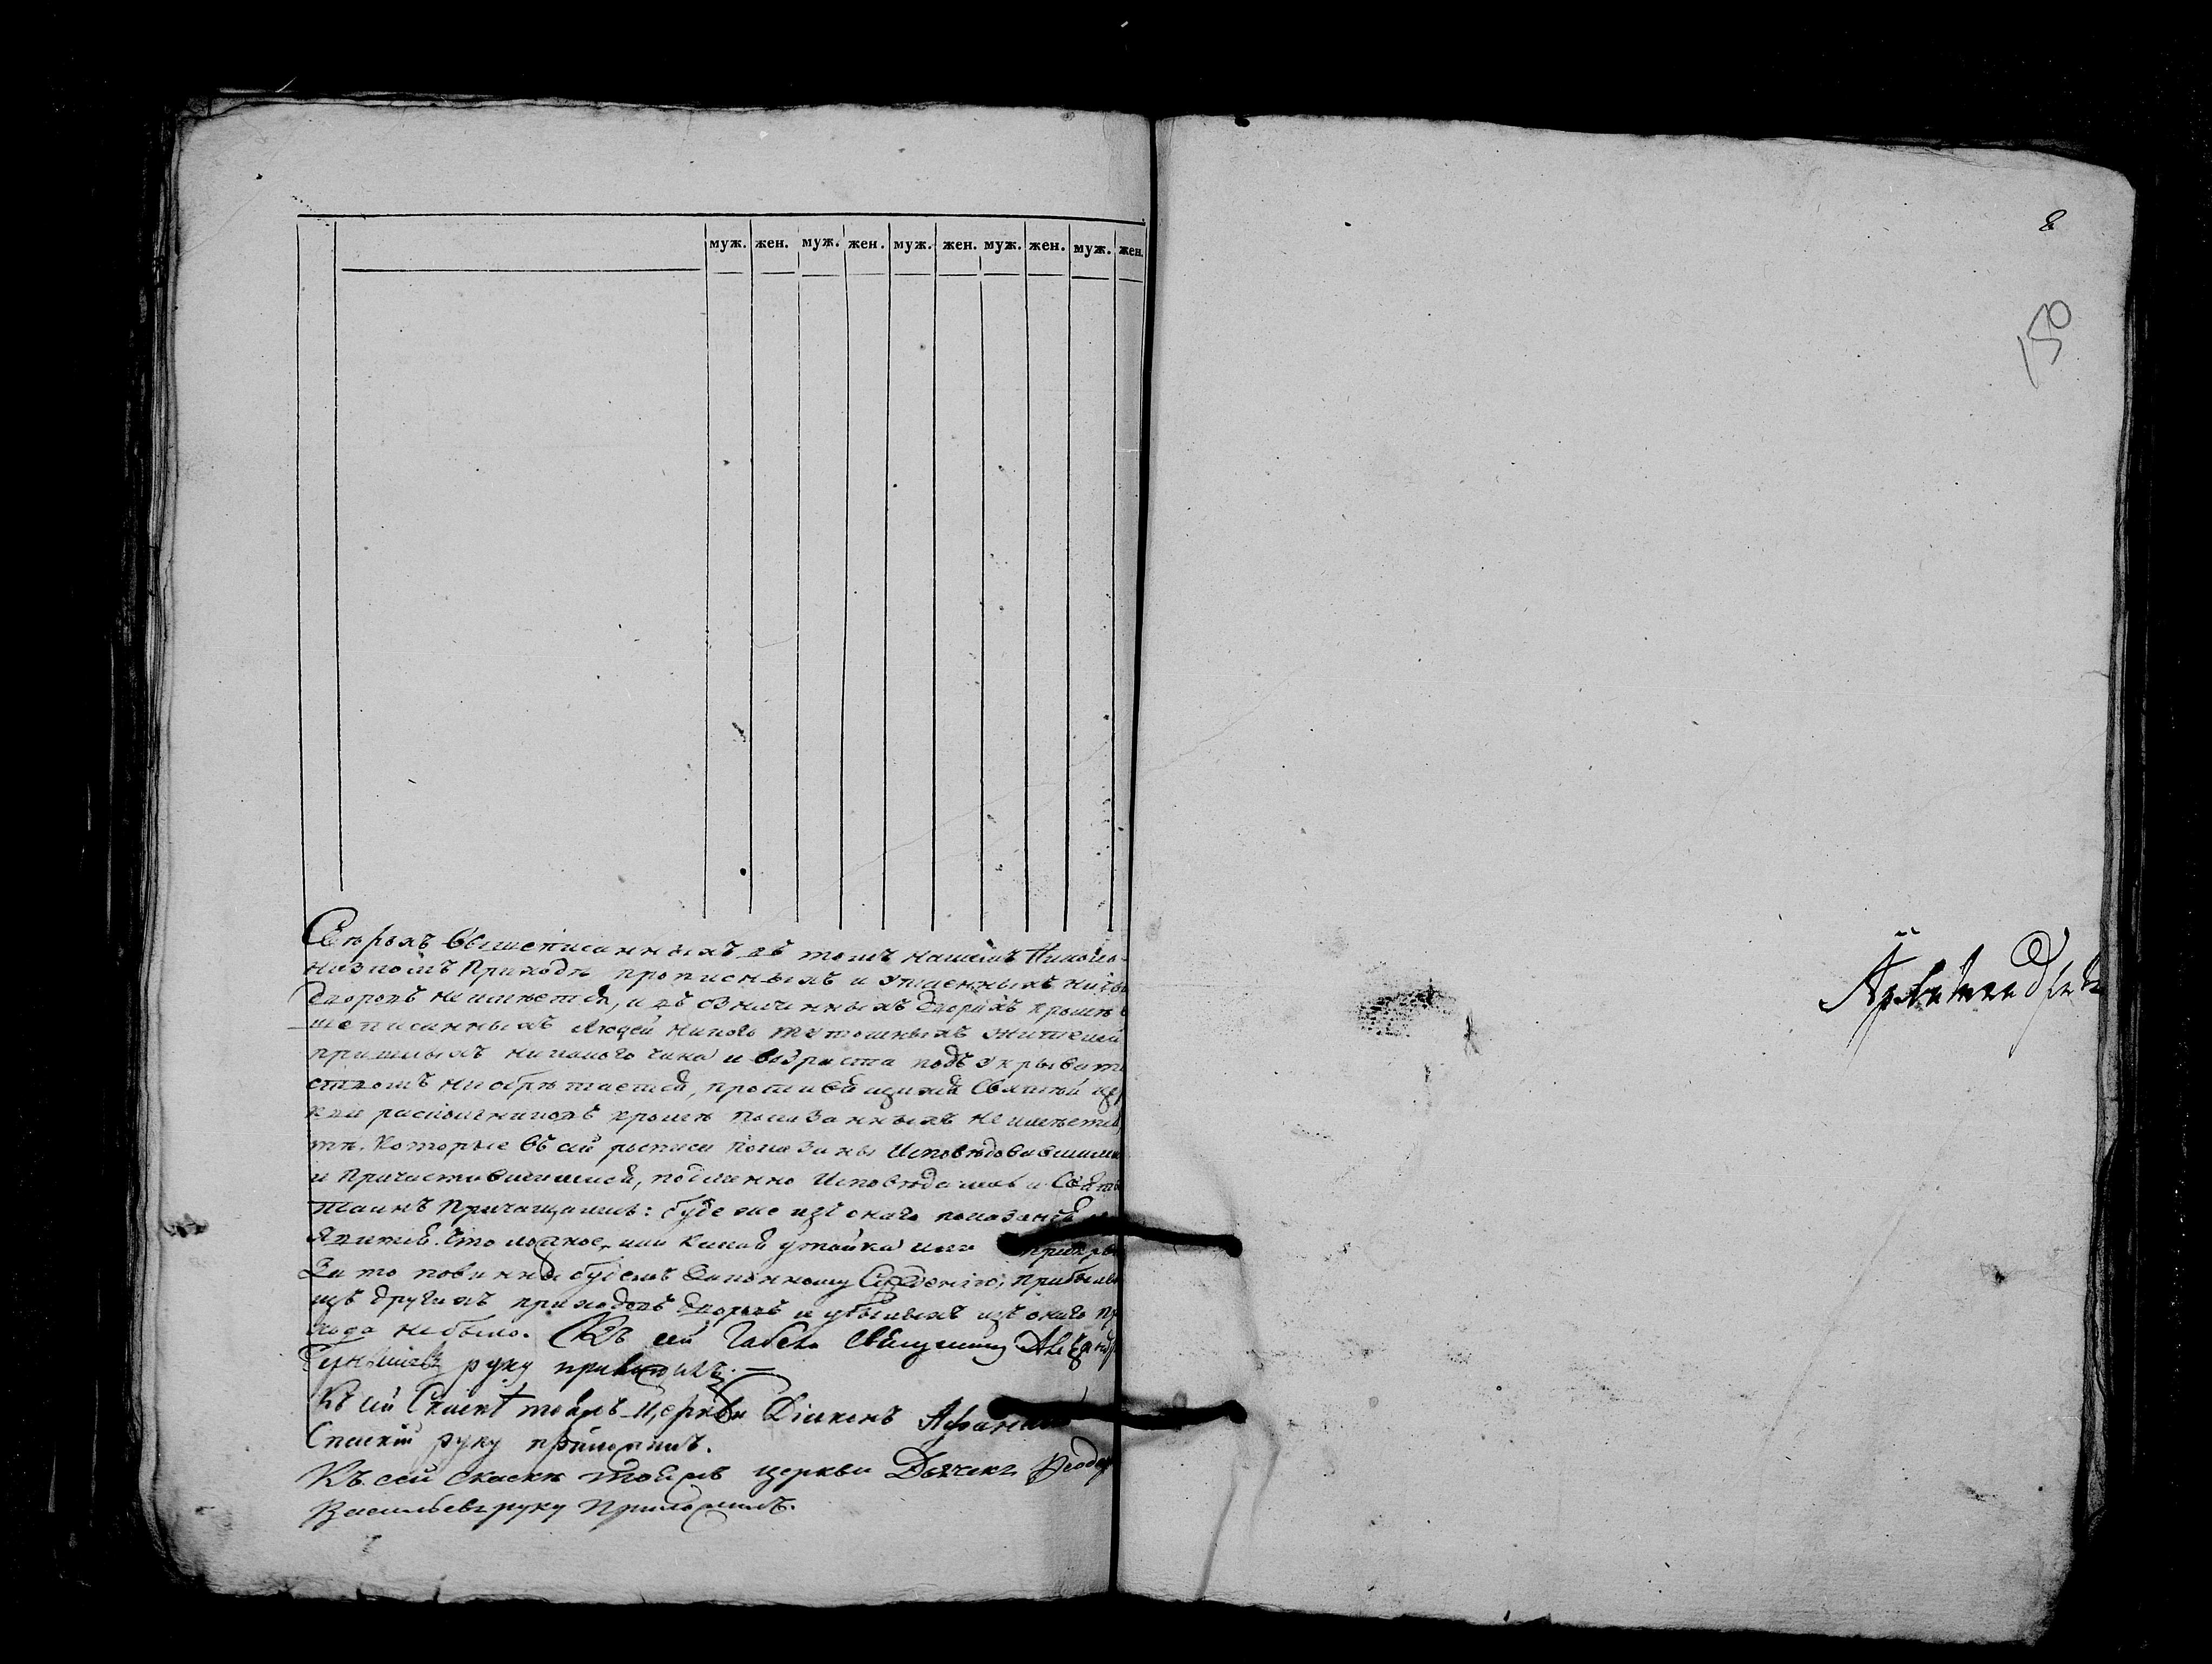 муж. жен. муж. жен. муж. жен. муж. жен. муж. жен.
Сверхъ вышеписанныхъ въ томъ нашемъ
Приходѣ прописныхъ и утаенныхъ
дворовъ неимѣется, и въ означенныхъ дворахъ кромѣ
шеписанныхъ людей никого тутошныхъ жителей
пришлыхъ никакого чина и возраста подъ укрыват
ствомъ необрѣтается, противящихся Святѣй цер
кви раскольниковъ кромѣ показанныхъ неимѣется,
тѣ. Которые въ сей росписи показаны Исповѣдовавшимися
и Причастившимися, подлинно Исповѣдались и Святы
Таинъ Причащались: буде же изъ онаго показанія
явится. Что ложное, или какая утайка или прикры
За то повинны будемъ Законному Сужденію, Прибылы
изъ другихъ приходовъ дворовъ и убылыхъ изъ онаго пр
хода небыло. Къ сей Табели Священникъ Александръ
руку приложилъ. =
Къ сей Скаскѣ тойжъ церкви Діаконъ Афанасій
Спаскій руку приложилъ.
Къ сей скаскѣ тойжъ церкви Дьячекъ Феодор
Васильевъ руку Приложилъ.
8
150